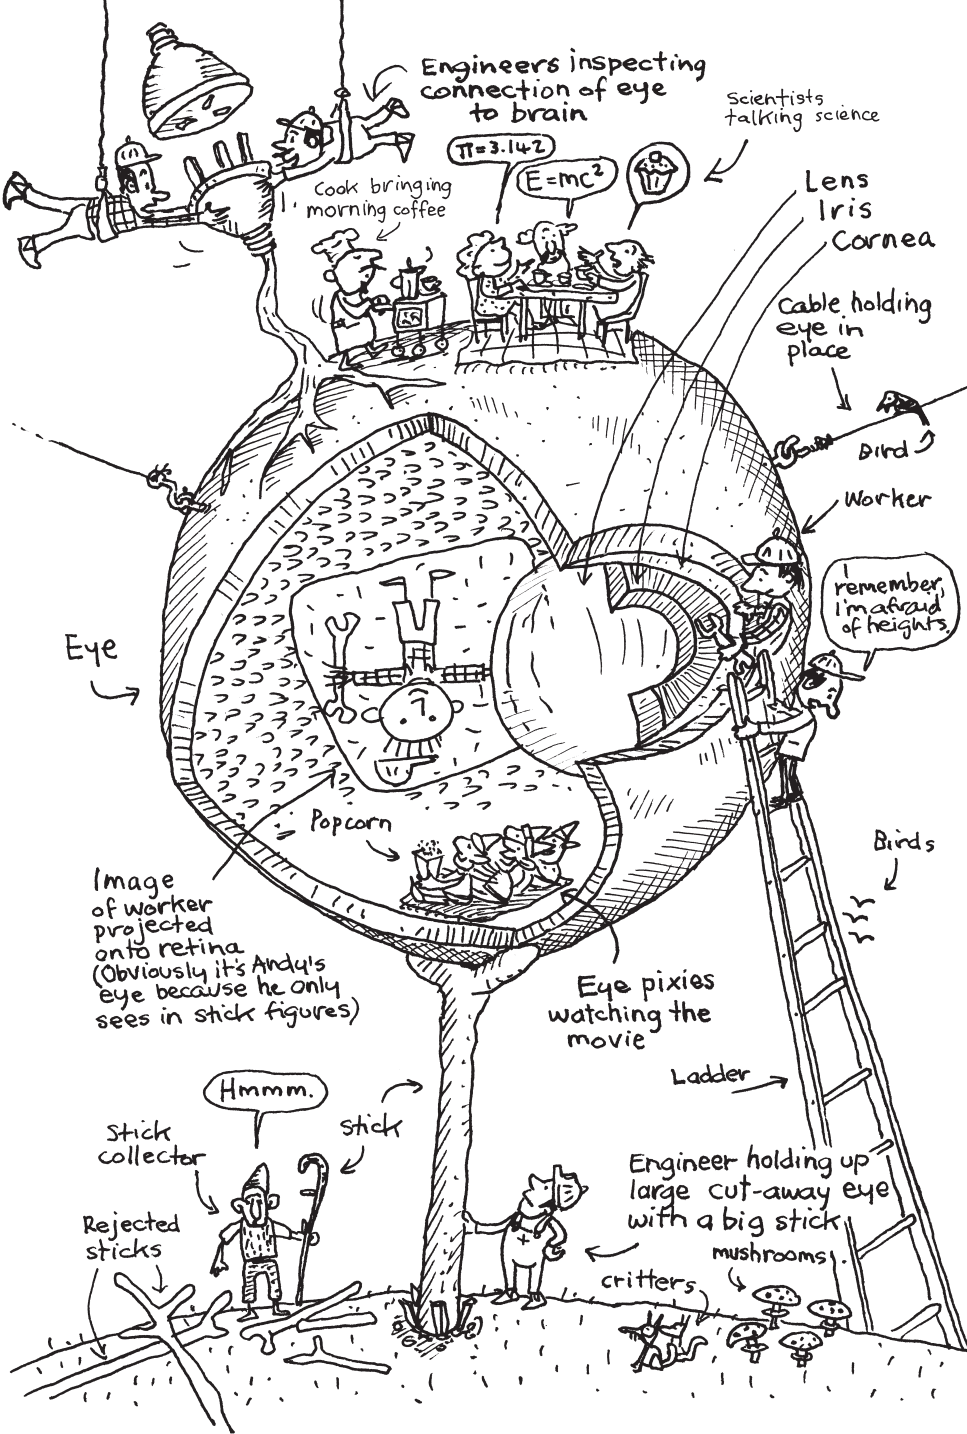 Engineers inspecting
connection of eye
to brain
Scientists
talking science
π=3.142
E=mc²
Cook bringing
morning coffee
Lens
Iris
Cornea
Cable holding
eye in
place
Bird
Worker
I
remember,
I'm afraid
of heights.
Eye
Popcorn
Birds
Image
of worker
projected
onto retina
(Obviously it's Andy's
eye because he only
sees in stick figures)
Eye pixies
watching the
movie
Ladder
Hmmm.
Stick
collector
stick
Rejected
sticks
Engineer holding up
large cut-away eye
with a big stick
mushrooms
critters